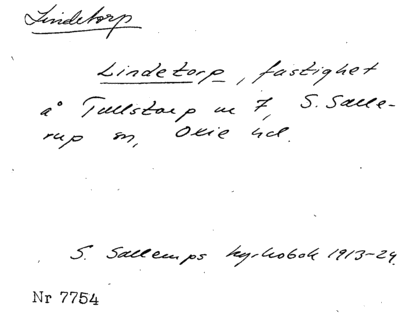 Lindetorp
Lindetorp, fastighet
å Tullstorp nr 7, S. Salle-
rup sn, Oxie hd.
S. Sallerups kyrkobok 1913-29.
Nr 7754